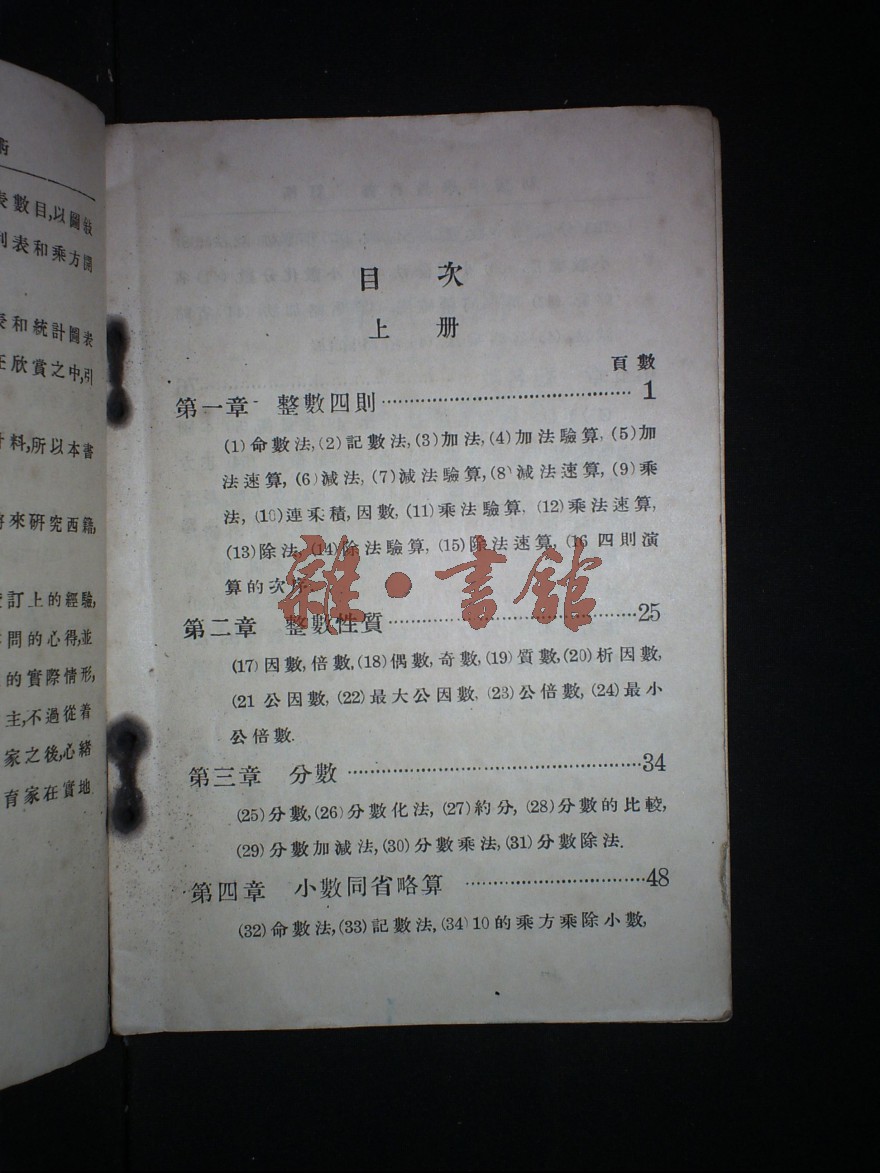 術
表數目,以圖敍
列表和乘方開
表和統計圖表
在欣賞之中,引
料,所以本書
將來研究西籍,
訂上的經驗,
問的心得,並
的實際情形,
主,不過從着
家之後,心緒
育家在實地
目次
上册
頁數
第一章 整數四則 1
(1)命數法,(2)記數法,(3)加法,(4)加法驗算,(5)加
法速算,(6)減法,(7)減法驗算,(8)減法速算,(9)乘
法,(10)連乘積,因數,(11)乘法驗算,(12)乘法速算,
(13)除法,(14)除法驗算,(15)除法速算,(16四則演
算的次序
雜·書館
第二章 整數性質 25
(17)因數,倍數,(18)偶數,奇數,(19)質數,(20)析因數,
(21公因數,(22)最大公因數,(23)公倍數,(24)最小
公倍數.
第三章 分數 34
(25)分數,(26)分數化法,(27)約分,(28)分數的比較,
(29)分數加減法,(30)分數乘法,(31)分數除法.
第四章 小數同省略算 48
(32)命數法,(33)記數法,(34)10的乘方乘除小數,